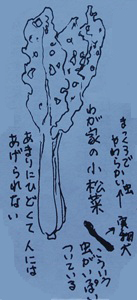 まっくろで
やわらかい虫
実物大
こういう
虫がいっぱい
ついている
わが家の小松菜
あまりにひどくて人には
あげられない